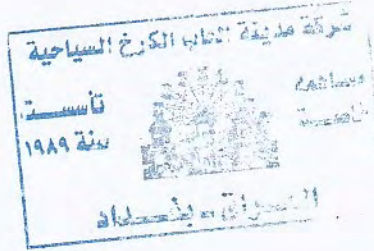 شركة مدينة العاب الكرخ السياحية
مساهمة
خاصة
تأسست
سنة ١٩٨٩
العراق - بغداد